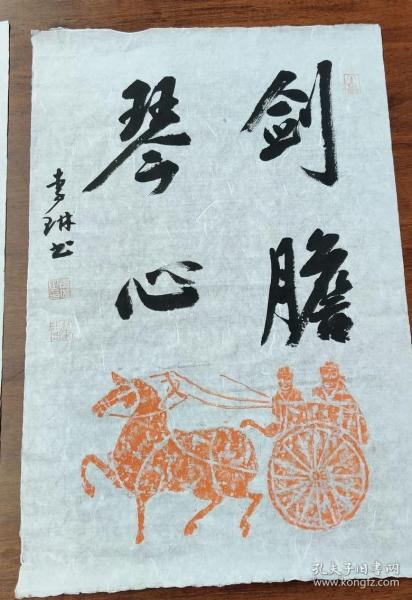 剑胆
琴心
李琳书
孔夫子旧书网
www.kongfz.com